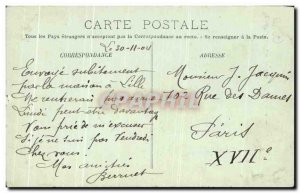 CARTE POSTALE
Tous les Pays étrangers n'acceptent pas la Correspondance au recto. — Se renseigner à la Poste.
CORRESPONDANCE
Le 20-11-04
Envoyé subitement
par la maison à Lille
Ne rentrerai pas avant
Lundi peut-être
Vous prie de m'excuser
si je ne suis pas Vendredi
chez vous.
Mes amitiés
ADRESSE
Monsieur J. Jacquin
Rue des Dames
Paris
XVIIe